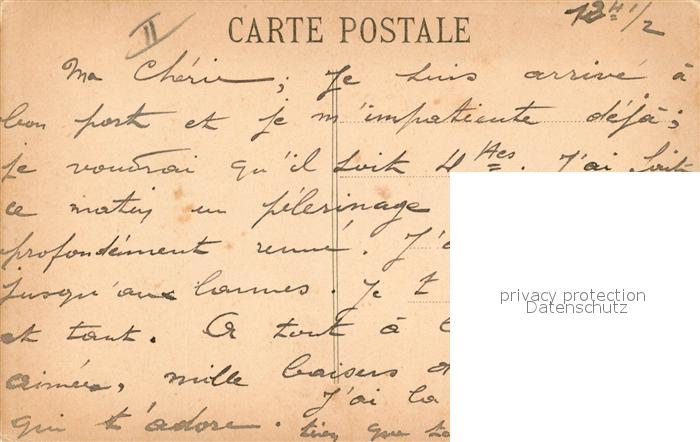 II
12H 1/2
CARTE POSTALE
Ma Chérie, Je suis arrivé à
bon port et je m'impatiente déjà;
je voudrai qu'il soit 4 Hes. J'ai fait
ce matin un pélerinage
profondément remué. J'
jusqu'aux larmes. Je t
et tant. A tout à
aimée, mille baisers
J'ai la
qui t'adore. que
privacy protection
Datenschutz